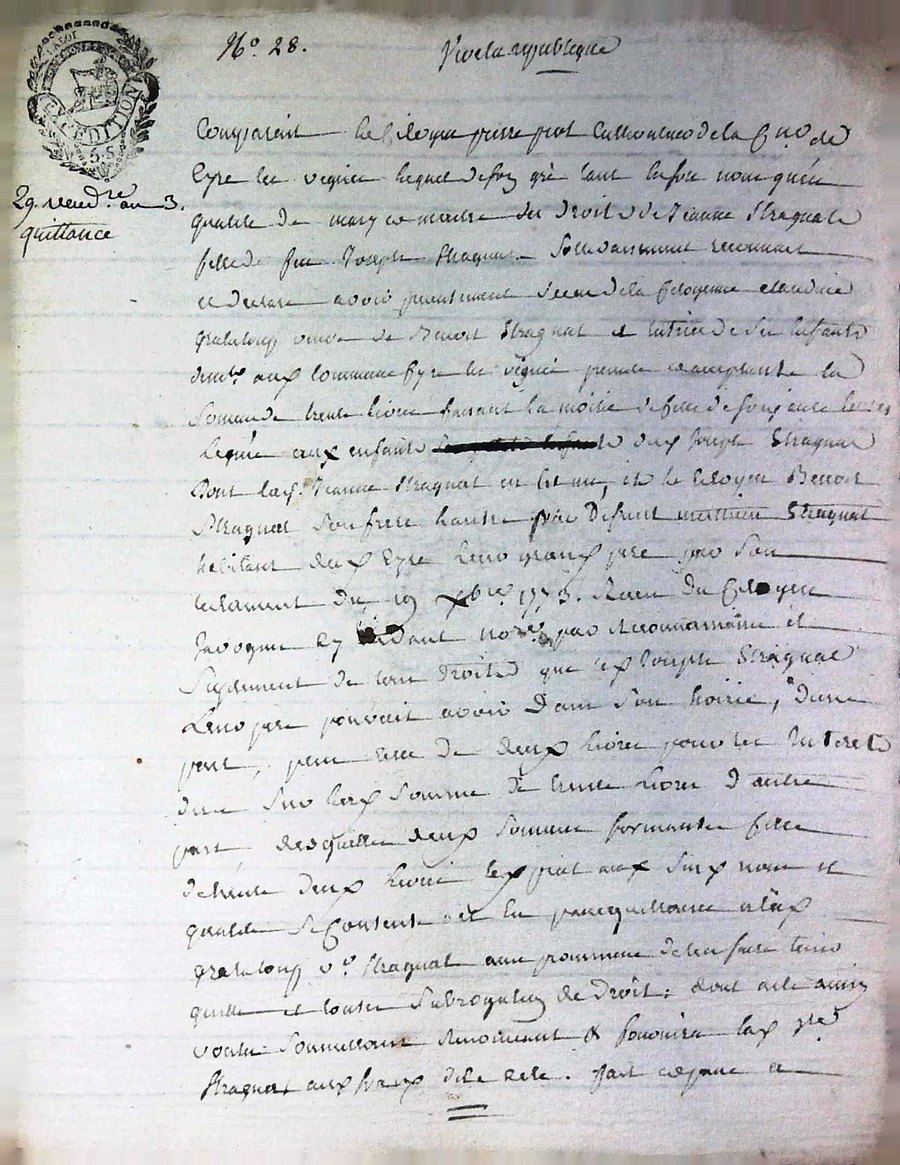 LA LOI
EXPEDITION
5 S
N.º 28.
Vive la republique
29 vendre an 3.
quittance
Comparait le Citoyen pierre piot cultivateur de la Cne de
Eyre les vignes lequel de son gré tant en son nom qu'en
qualité de mary et maitre des droits de Jeanne Stragnat
fille de feu Joseph Stragnat Sollvairement reconnait
et declare avoir presentement receu de la Citoyenne claudine
grataloup veuve de Benoit Stragnat et tutrice de ses Enfants
demte aux commune Eyre les vignes presente et acceptante la
Somme de trente livres faisant la moitié de celle de soixante livres
leguée aux enfants dud Joseph Stragnat
Dont lad. Jeanne Stragnat en est une, et le Citoyen Benoit
Stragnat Son frere l'autre par Defunt mathieu Stragnat
habitant dud Eyre Leur grand pere par Son
testament du 19 xbre 1773. Receu du Citoyen
Javogue Ey devant nore, par reconnaissance et
Suplement de tous droits que led Joseph Stragnat
Leur pere pouvait avoir Dans Son hoirie, d'une
part, pareillement de deux livres pour les Interets
dus Sur lad Somme de trente livres D'autre
part, desquelles deux Sommes formantes celle
de trente deux livres led piot aux Susd nom et
qualité Se Contente et en passe quittance alad
grataloup ve. Stragnat avec promesse de les faire tenir
quitte et toutes Subrogation de Droit: dont acte ainsi
voulu Soumettant Renoncant &
Stragnat aux fraix de la dete. fait et passé a